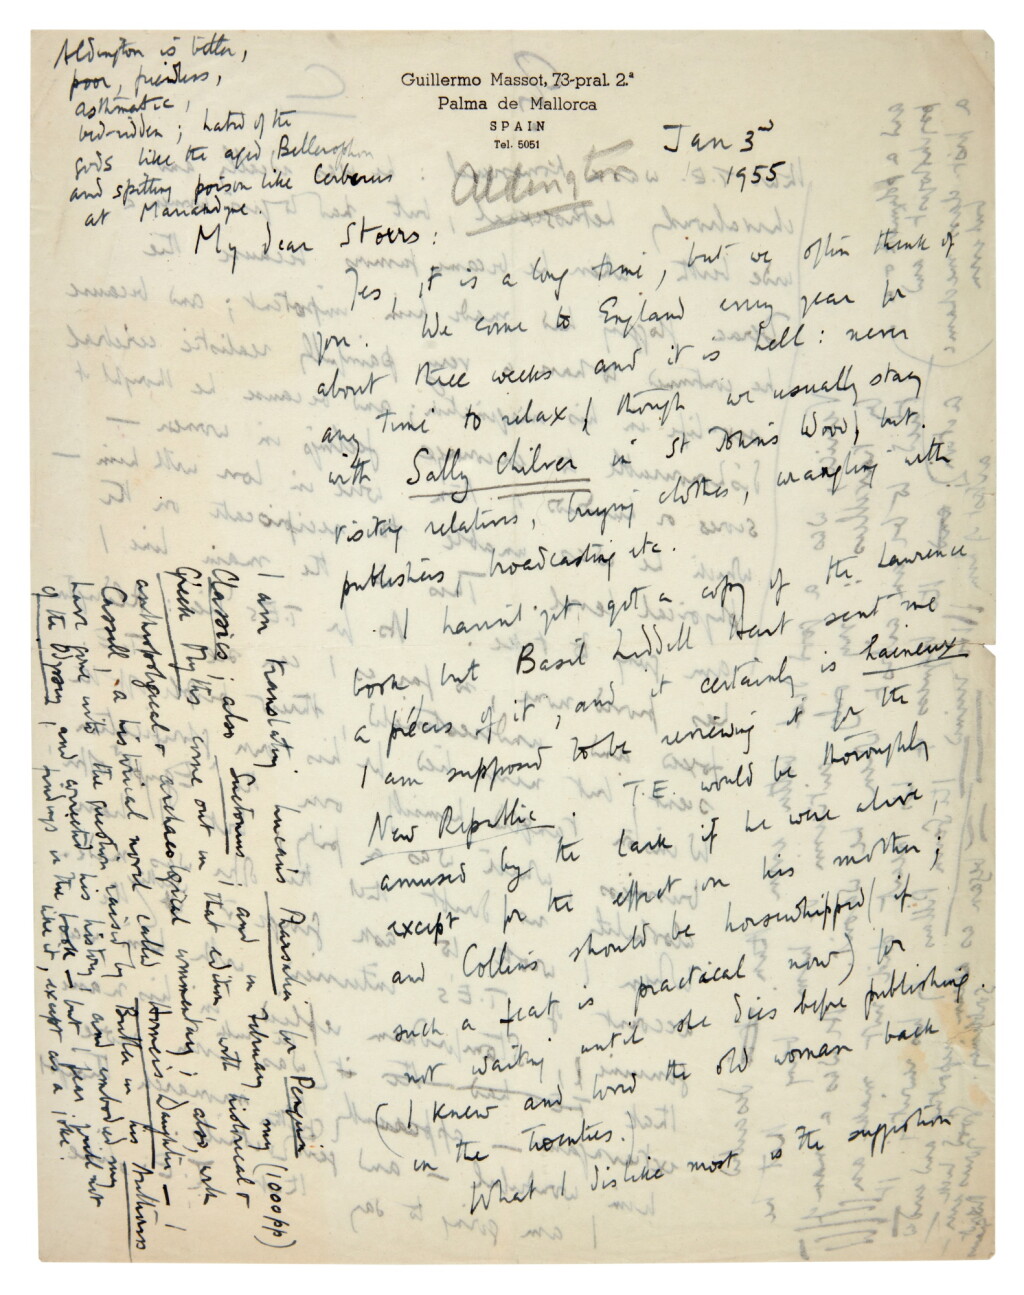 Aldington is bitter,
poor, friendless,
asthmatic,
bed-ridden; hated of the
gods like the aged Bellerophon
and spitting poison like Cerberus
at Mariandyne.
Guillermo Massot, 73-pral. 2.ª
Palma de Mallorca
SPAIN
Tel. 5051
Aldington
Jan 3rd
1955
My dear Storrs:
Yes, it is a long time, but we often think of
you. We come to England every year for
about three weeks and it is hell: never
any time to relax (though we usually stay
with Sally Chilver in St John's Wood) but
visiting relations, buying clothes, wrangling with
publishers broadcasting etc.
I haven't yet got a copy of the Lawrence
book, but Basil Liddell Hart sent me
a précis of it, and it certainly is haineux
I am supposed to be reviewing it for the
New Republic. T.E. would be thoroughly
amused by the lark if he were alive,
except for the effect on his mother;
and Collins should be horsewhipped (if
such a feat is practical now) for
not waiting until she dies before publishing.
(I knew and loved the old woman back
in the Twenties.)
What I dislike most is the suggestion
I am translating Lucan's Pharsalia for Penguin
Classics; also Suetonius; and in February my (1000 pp)
Greek Myths come out in that edition, with historical &
anthropological & archaeological commentary; also, with
Cassell, a historical novel called Homer's Daughter — I
have gone into the question raised by Butler in his Authoress
of the Odyssey, and corrected his history, and embodied my
findings in the book — but I fear you'll not
like it, except as a joke.